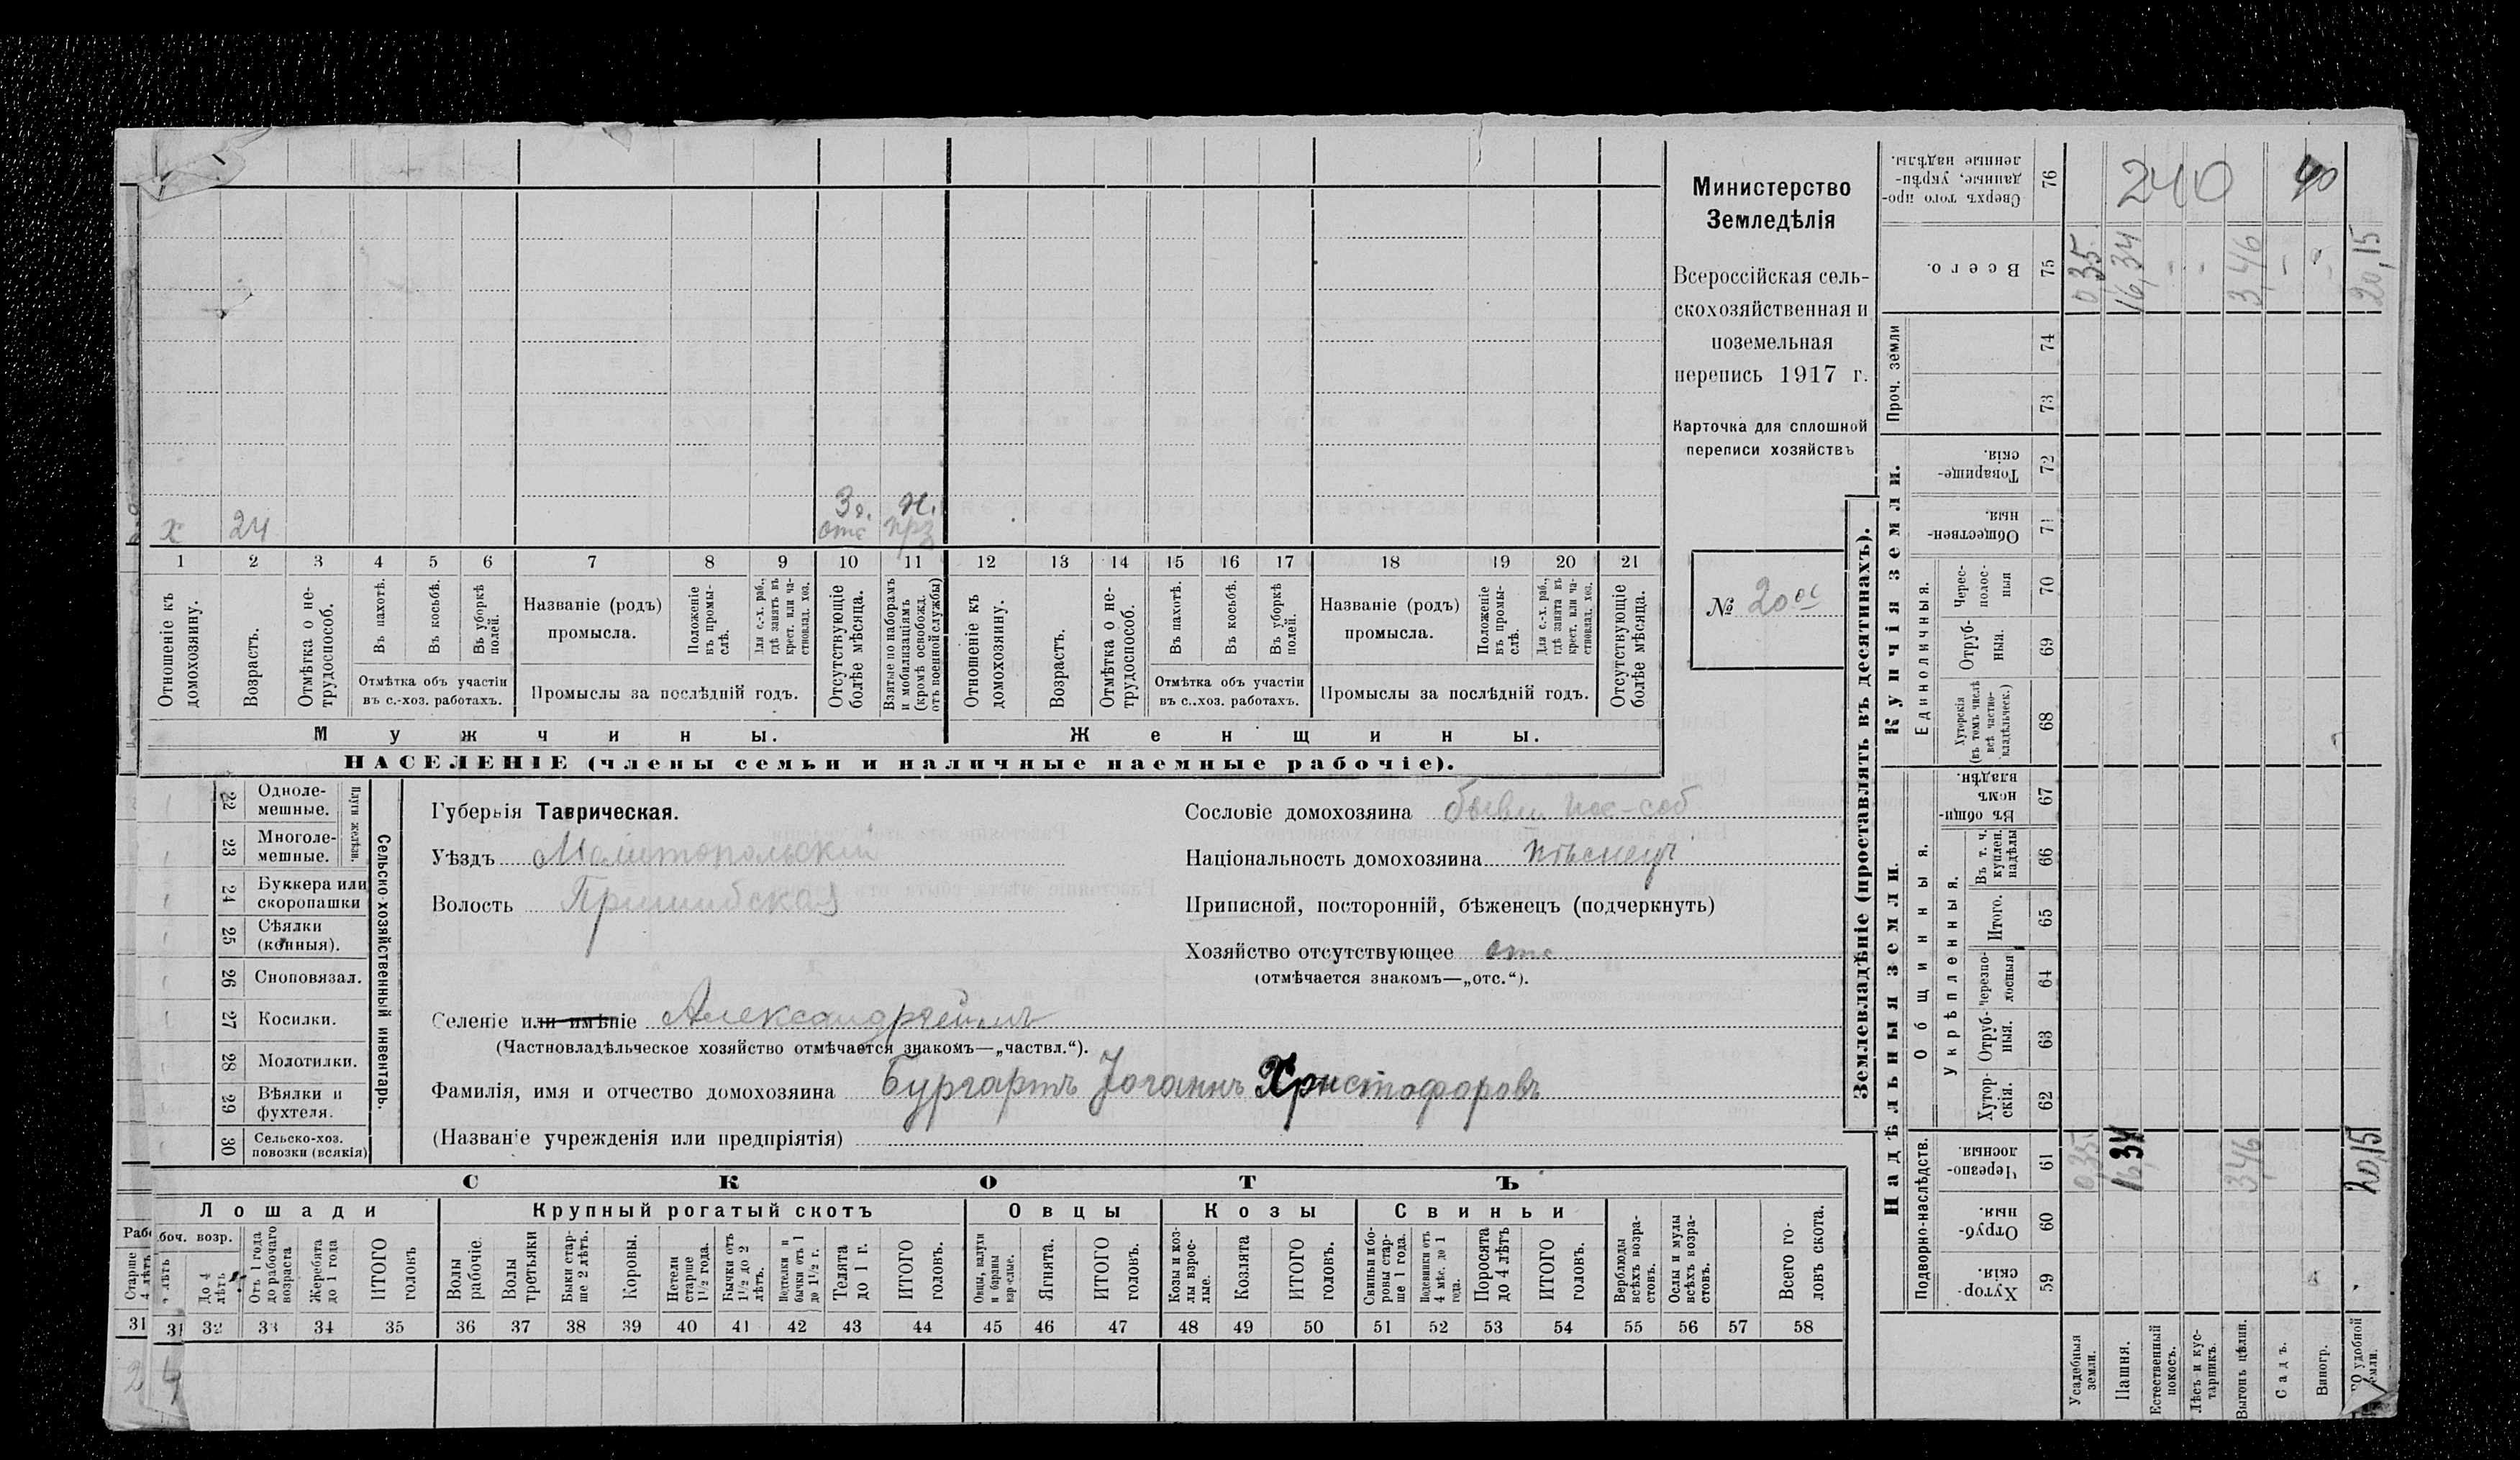 х 24 З д. н.
отс прз
1 2 3 4 5 6 7 8 9 10 11 12 13 14 15 16 17 18 19 20 21
Отношеніе къ домохозяину.
Возрастъ.
Отмѣтка о не-
трудоспособ.
Въ пахотѣ.
Въ косьбѣ.
Въ уборкѣ
полей.
Отмѣтка объ участіи
въ с.-хоз. работахъ.
Названіе (родъ)
промысла.
Положеніе
въ промы-
слѣ.
Для с.-х. раб.,
гдѣ занятъ въ
крест. или ча-
стновлад. хоз.
Промыслы за послѣдній годъ.
Отсутствующіе
болѣе мѣсяца.
Взятые по наборамъ
и мобилизаціямъ
(кромѣ освобожд.
отъ военной службы)
Отношеніе къ
домохозяину.
Возрастъ.
Отмѣтка о не-
трудоспособ.
Въ пахотѣ.
Въ косьбѣ.
Въ уборкѣ
полей.
Отмѣтка объ участіи
въ с..хоз. работахъ.
Названіе (родъ)
промысла.
Положеніе
въ промы-
слѣ.
Для с.-х. раб.,
гдѣ занята въ
крест. или ча-
стновлад. хоз.
Промыслы за послѣдній годъ.
Отсутствующіе
болѣе мѣсяца.
Мужчины.
Женщины.
НАСЕЛЕНІЕ (члены семьи и наличные наемные рабочіе).
Министерство
Земледѣлія
Всероссійская сель-
скохозяйственная и
поземельная
перепись 1917 г.
Карточка для сплошной
переписи хозяйствъ
№ 20
22 Одноле-
мешные.
23 Многоле-
мешные.
Плуги желѣзн.
24 Буккера или
скоропашки
25 Сѣялки
(конныя).
26 Сноповязал.
27 Косилки.
28 Молотилки.
29 Вѣялки и
фухтеля.
30 Сельско-хоз.
повозки (всякія)
Сельско-хозяйственный инвентарь.
Губернія Таврическая.
Уѣздъ Мелитопольскій
Волость Пришибская
Сословіе домохозяина бывш. пос-соб
Національность домохозяина нѣмецъ
Приписной, посторонній, бѣженецъ (подчеркнуть)
Хозяйство отсутствующее отс
(отмѣчается знакомъ—„отс.“).
Селеніе или имѣніе Александргеймъ
(Частновладѣльческое хозяйство отмѣчается знакомъ—„частвл.“).
Фамилія, имя и отчество домохозяина Бургартъ Іоганнъ Христофоровъ
(Названіе учрежденія или предпріятія)
СКОТЪ
Лошади
Крупный рогатый скотъ
Овцы
Козы
Свиньи
Старше
4 лѣтъ
боч. возр.
До 4
лѣтъ
Отъ 1 года
до рабочаго
возраста
Жеребята
до 1 года
ИТОГО
головъ
Волы
рабочіе.
Волы
третьяки
Быки стар-
ше 2 лѣтъ.
Коровы.
Нетели
старше
1½ года.
Бычки отъ
1½ до 2
лѣтъ.
Подтелки и
бычки отъ 1
до 1½ г.
Телята
до 1 г.
ИТОГО
головъ.
Овцы, валухи
и бараны
взрослые.
Ягнята.
ИТОГО
головъ.
Козы и коз-
лы взрос-
лые.
Козлята
ИТОГО
головъ.
Свиньи и бо-
ровы стар-
ше 1 года.
Подсвинки отъ
4 мѣс. до 1
года.
Поросята
до 4 лѣтъ
ИТОГО
головъ.
Верблюды
всѣхъ возра-
стовъ.
Ослы и мулы
всѣхъ возра-
стовъ.
Всего го-
ловъ скота.
31 31 32 33 34 35 36 37 38 39 40 41 42 43 44 45 46 47 48 49 50 51 52 53 54 55 56 57 58
2 4
Землевладѣніе (проставлять въ десятинахъ).
Купчія земли.
Надѣльныя земли.
Сверхъ того про-
данные, укрѣп-
ленные надѣлы.
76 240 40
Всего.
75 0,35 16,34 - - 3,46 - - 20,15
Проч. земли
74
73
Товарище-
скія.
72
Обществен-
ныя.
71
Единоличныя.
Черес-
полос-
ныя
70
Отруб-
ныя.
69
Хуторскія
(въ томъ числѣ
всѣ частно-
владѣльческ.)
68
Общинныя.
Въ общин-
номъ
владѣн.
67
Укрѣпленныя.
Въ т. ч.
куплен.
надѣлы
66
Итого.
65
черезпо-
лосныя
64
Отруб-
ныя.
63
Хутор-
скія.
62
Подворно-наслѣдств.
Черезпо-
лосныя.
61 0,35 16,34 3,46 20,15
Отруб-
ныя.
60
Хутор-
скія.
59
Усадебныя
земли.
Пашня.
Естественный
покосъ.
Лѣсъ и кус-
тарникъ.
Выгонъ цѣлин.
Садъ.
Виногр.
удобной
земли.